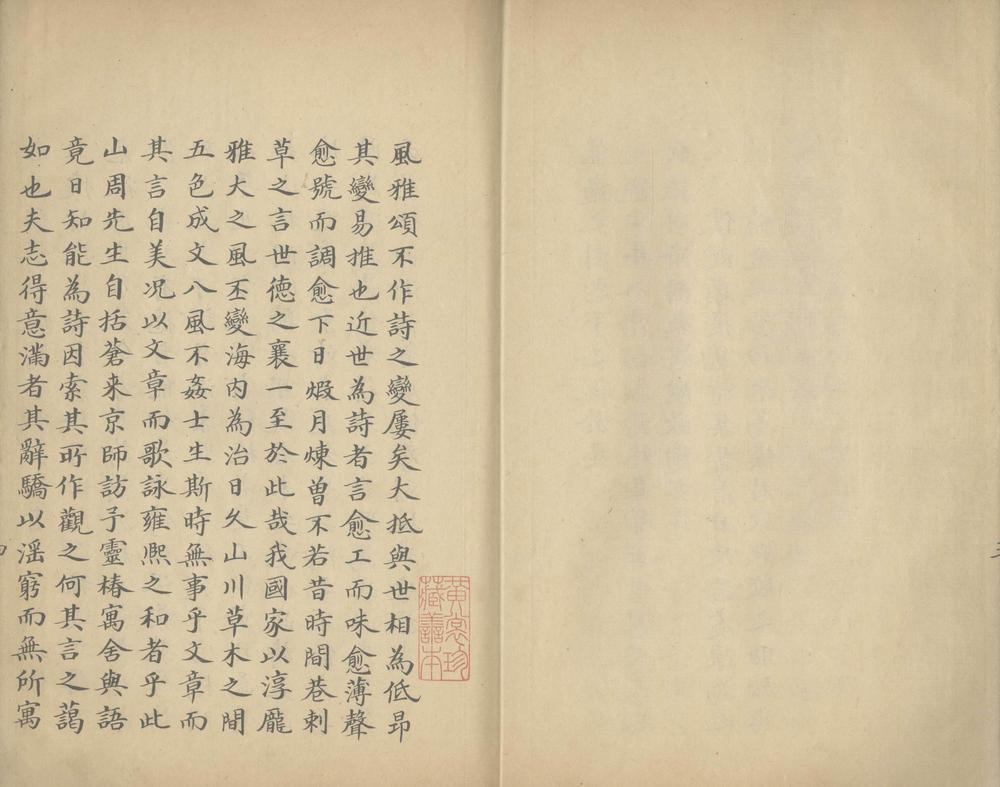 風雅頌不作詩之變屢矣大抵與世相為低昂
其變易推也近世為詩者言愈工而味愈薄聲
愈號而調愈下日煆月煉曽不若昔時閭巷刺
草之言世德之襄一至於此哉我國家以淳龐
雅大之風丕變海内為治日久山川草木之間
五色成文八風不姦士生斯時無事乎文章而
其言自美况以文章而歌詠雍熙之和者乎此
山周先生自括蒼来京師訪予靈椿寓舍與語
竟日知能為詩因索其所作觀之何其言之藹
如也夫志得意滿者其辭驕以滛窮而無所寓
黄裳珍
藏善本